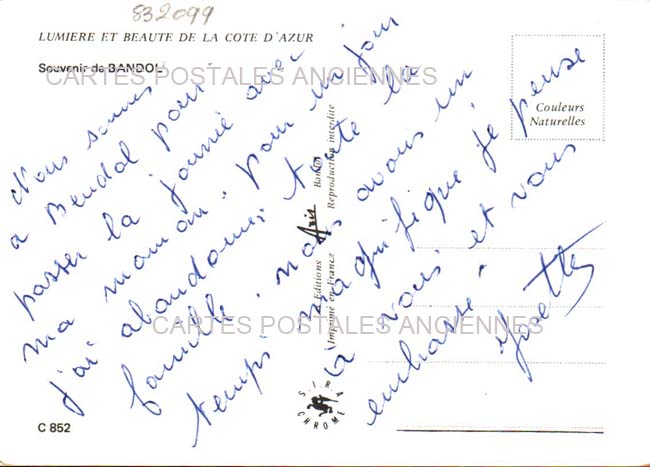 832099
LUMIERE ET BEAUTE DE LA COTE D'AZUR
Souvenir de BANDOL
CARTES POSTALES ANCIENNES
Couleurs
Naturelles
Nous sommes
a Bendol pour
passer la journée avec
ma maman. Pour un jour
j'ai abandonné toute la
famille, nous avons un
temps magnifique je pense
à vous et vous
embrasse.
Yvette
Editions
Aris
Bandol
Imprimé en France
Reproduction interdite
CARTES POSTALES ANCIENNES
SIRA
CHROME
C 852